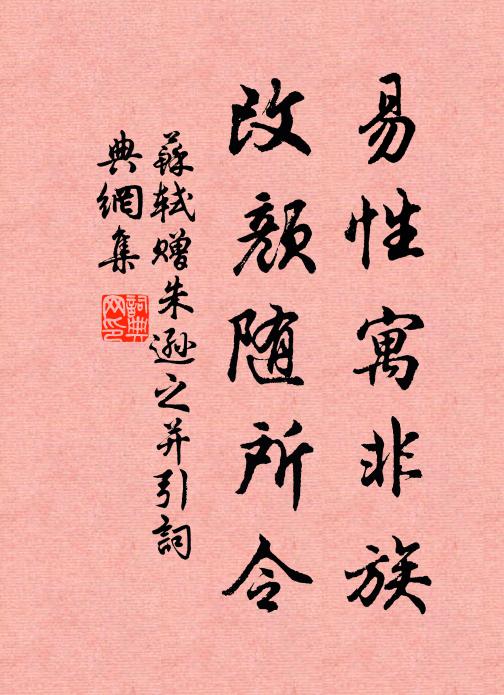 易性寓非族
改颜随所令
蘇軾赠朱遜之并引詞
典網集
詞典
网印